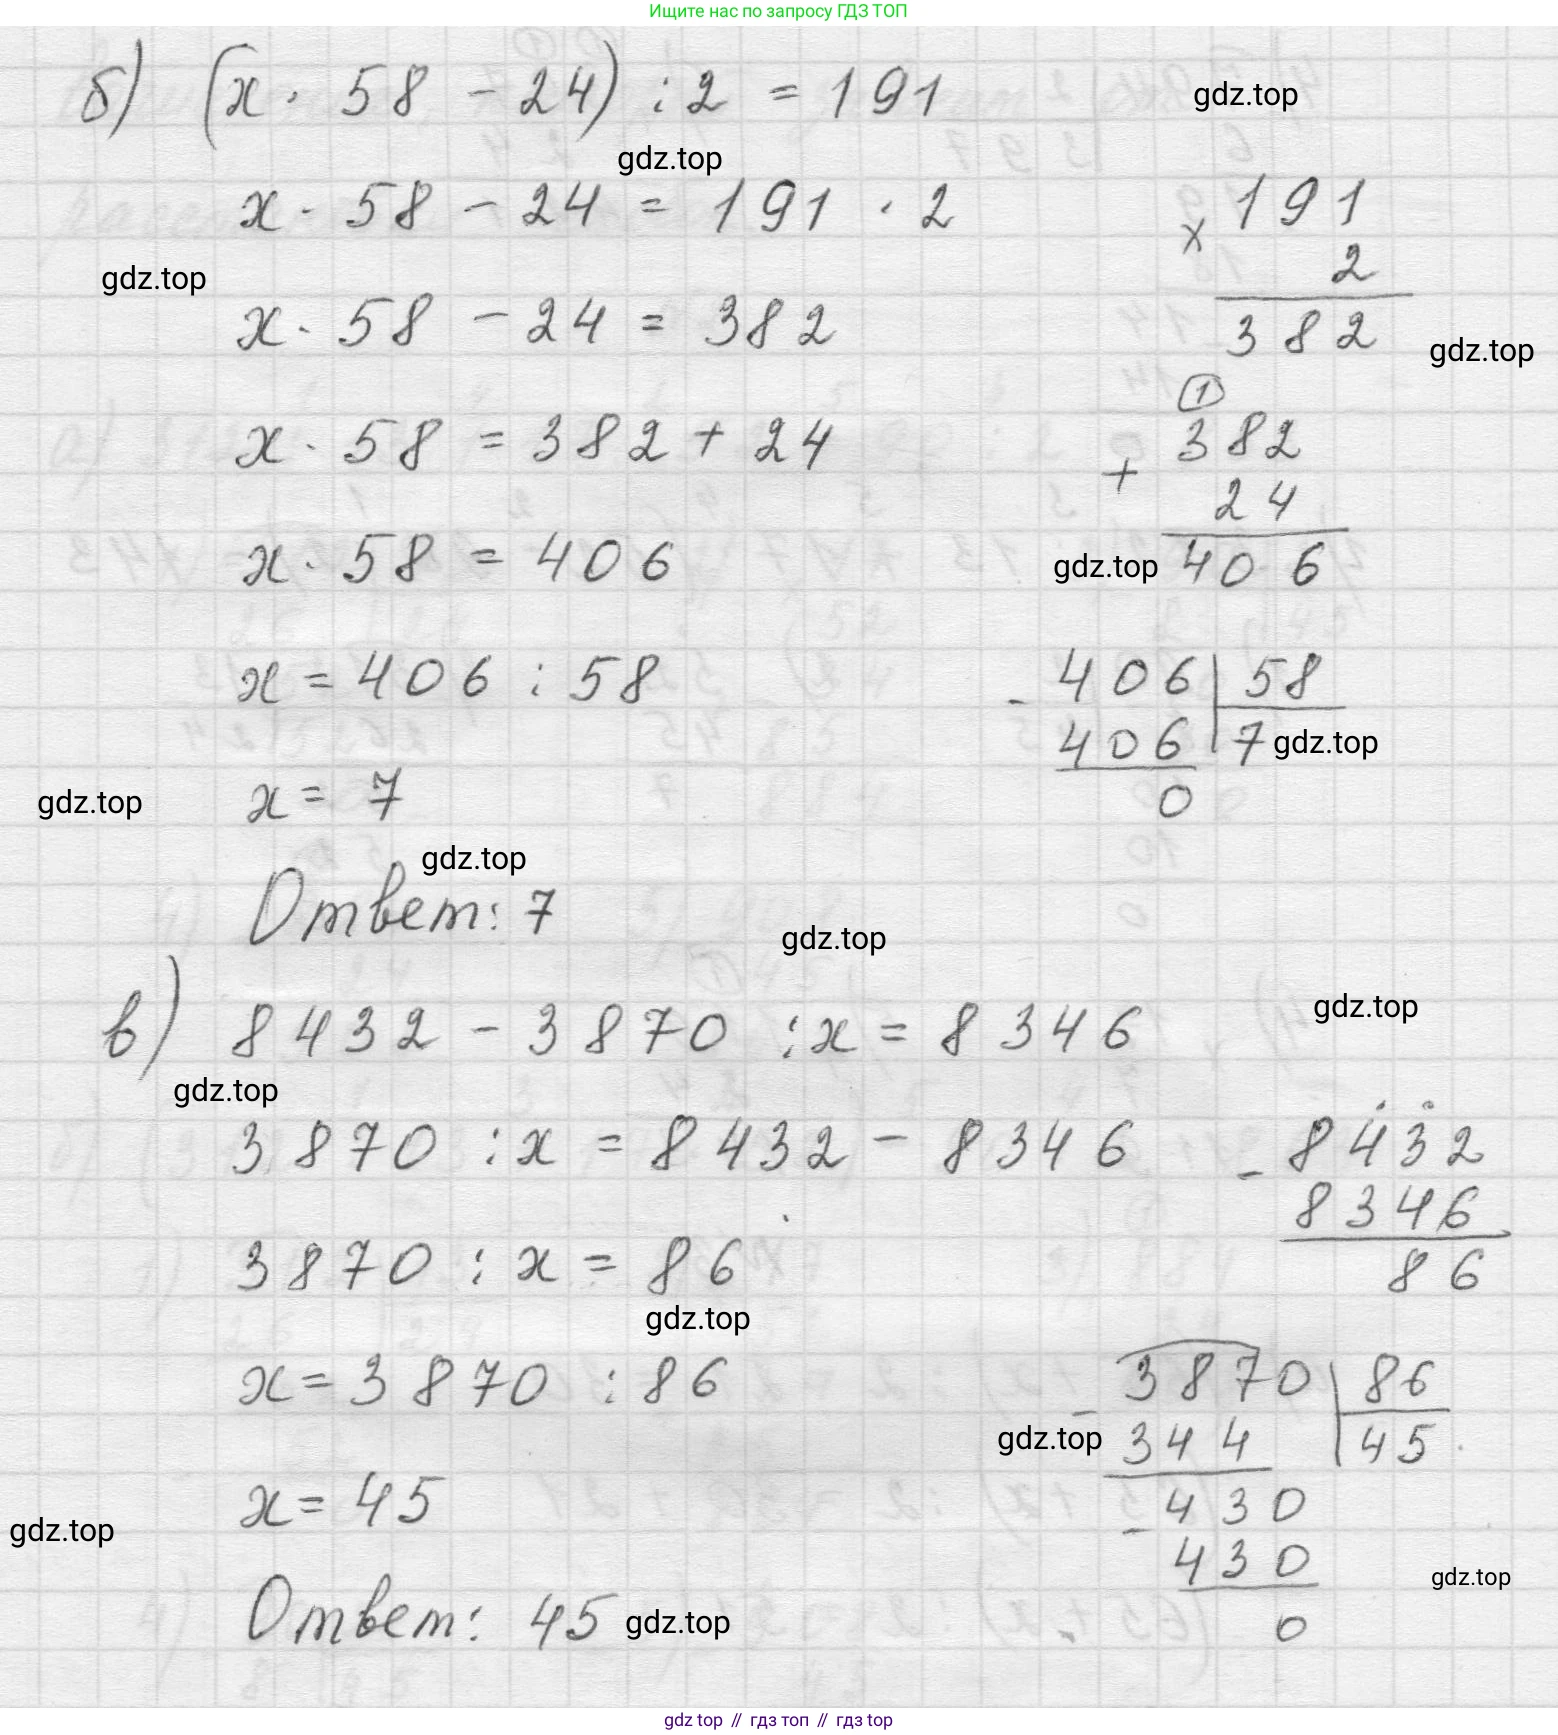 Ищите нас по запросу ГДЗ ТОП
б) (x · 58 - 24) : 2 = 191
gdz.top
gdz.top
x · 58 - 24 = 191 · 2
× 191
2
382
gdz.top
x · 58 - 24 = 382
gdz.top
x · 58 = 382 + 24
1
+ 382
24
406
gdz.top
x · 58 = 406
x = 406 : 58
- 406 58
406 7
0
gdz.top
x = 7
gdz.top
gdz.top
Ответ: 7
gdz.top
в) 8432 - 3870 : x = 8346
gdz.top
gdz.top
3870 : x = 8432 - 8346
- 8432
8346
86
3870 : x = 86
gdz.top
x = 3870 : 86
- 3870 86
344 45
- 430
430
0
gdz.top
x = 45
gdz.top
gdz.top
Ответ: 45
gdz.top
gdz top // гдз топ // гдз top